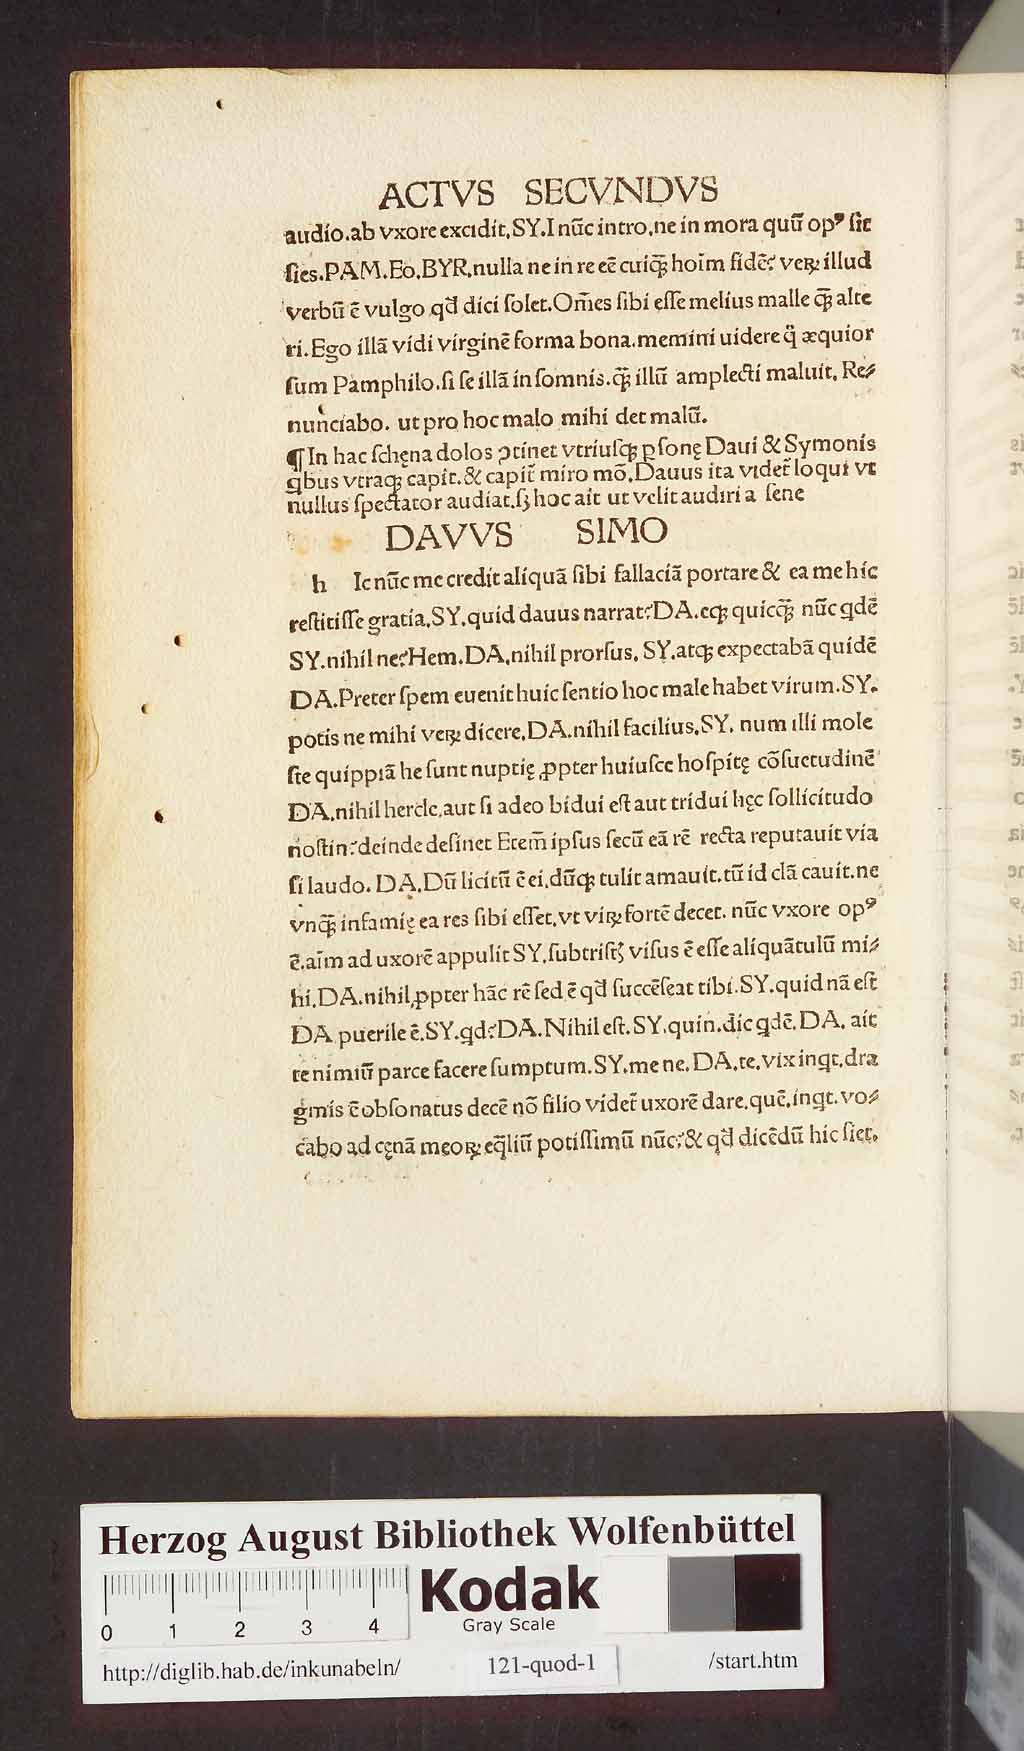 ACTVS SECVNDVS
audio.ab vxore excidit.SY.I nūc intro.ne in mora quū opꝰ sit
sies.PAM.Eo.BYR.nulla ne in re eē cuiqꝫ hoīm fidē? veꝝ illud
verbū ē vulgo qđ dici solet.Om̄es sibi esse melius malle qꝫ̄ alte
ri.Ego illā vidi virginē forma bona.memini uidere q̄ æquior
sum Pamphilo.si se illā in somnis.qꝫ̄ illū amplecti maluit. Re⸗
nunciabo. ut pro hoc malo mihi det malū.
¶In hac schęna dolos ꝯtinet vtriusqꝫ ꝑsonę Daui & Symonis
ꝗbus vtraqꝫ capit.& capit̄ miro mō.Dauus ita videt̄ loqui vt
nullus spectator audiat.sꝫ hoc ait ut velit audiri a sene
DAVVS SIMO
h Ic nūc me credit aliquā sibi fallaciā portare & ea me hic
restitisse gratia.SY.quid dauus narrat?DA.eqꝫ quicqꝫ̄ nūc ꝗdē
SY.nihil ne?Hem.DA.nihil prorsus. SY.atqꝫ expectabā quidē
DA.Preter spem euenit huic sentio hoc male habet virum.SY.
potis ne mihi veꝝ dicere.DA.nihil facilius.SY. num illi mole
ste quippiā he sunt nuptię ꝓpter huiusce hospitę cōsuetudinē
DA.nihil hercle.aut si adeo bidui est aut tridui hęc sollicitudo
nostin?deinde desinet Etem̄ ipsus secū eā rē recta reputauit via
si laudo. DA.Dū licitū ē ei.dūqꝫ tulit amauit.tū id clā cauit.ne
vnqꝫ̄ infamię ea res sibi esset.vt viꝝ fortē decet. nūc vxore opꝰ
ē.aīm ad uxorē appulit SY.subtristꝭ visus ē esse aliquātulū mi⸗
hi.DA.nihil ꝓpter hāc rē sed ē qđ succēseat tibi.SY.quid nā est
DA puerile ē.SY.ꝗd?DA.Nihil est.SY.quin.dic ꝗdē.DA. ait
te nimiū parce facere sumptum.SY.me ne.DA.te.vix inꝗt.dra
gmis ē obsonatus decē nō filio videt̄ uxorē dare.quē.inꝗt.vo⸗
cabo ad cęnā meoꝝ eq̄liū potissimū nūc?& qđ dicēdū hic siet.
Herzog August Bibliothek Wolfenbüttel
0 1 2 3 4
Kodak
Gray Scale
http://diglib.hab.de/inkunabeln/ 121-quod-1 /start.htm